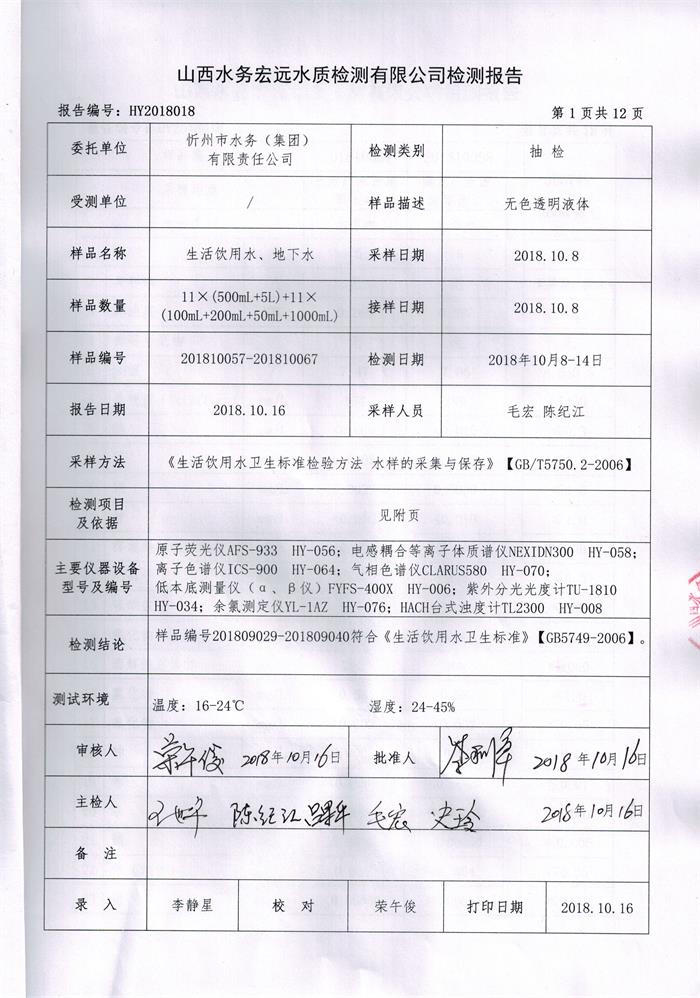 山西水务宏远水质检测有限公司检测报告
报告编号：HY2018018 第 1 页共 12 页
委托单位 忻州市水务（集团）
有限责任公司 检测类别 抽 检
受测单位 / 样品描述 无色透明液体
样品名称 生活饮用水、地下水 采样日期 2018.10.8
样品数量 11×(500mL+5L)+11×
(100mL+200mL+50mL+1000mL) 接样日期 2018.10.8
样品编号 201810057-201810067 检测日期 2018年10月8-14日
报告日期 2018.10.16 采样人员 毛宏 陈纪江
采样方法 《生活饮用水卫生标准检验方法 水样的采集与保存》【GB/T5750.2-2006】
检测项目
及依据 见附页
主要仪器设备
型号及编号
原子荧光仪AFS-933 HY-056；电感耦合等离子体质谱仪NEXIDN300 HY-058；
离子色谱仪ICS-900 HY-064；气相色谱仪CLARUS580 HY-070；
低本底测量仪（α、β仪）FYFS-400X HY-006；紫外分光光度计TU-1810
HY-034；余氯测定仪YL-1AZ HY-076；HACH台式浊度计TL2300 HY-008
检测结论 样品编号201809029-201809040符合《生活饮用水卫生标准》【GB5749-2006】。
测试环境 温度：16-24℃ 湿度：24-45%
审核人 荣午俊 2018年10月16日 批准人 2018年10月16日
主检人 陈纪江 毛宏 史玲 2018年10月16日
备 注
录 入 李静星 校 对 荣午俊 打印日期 2018.10.16